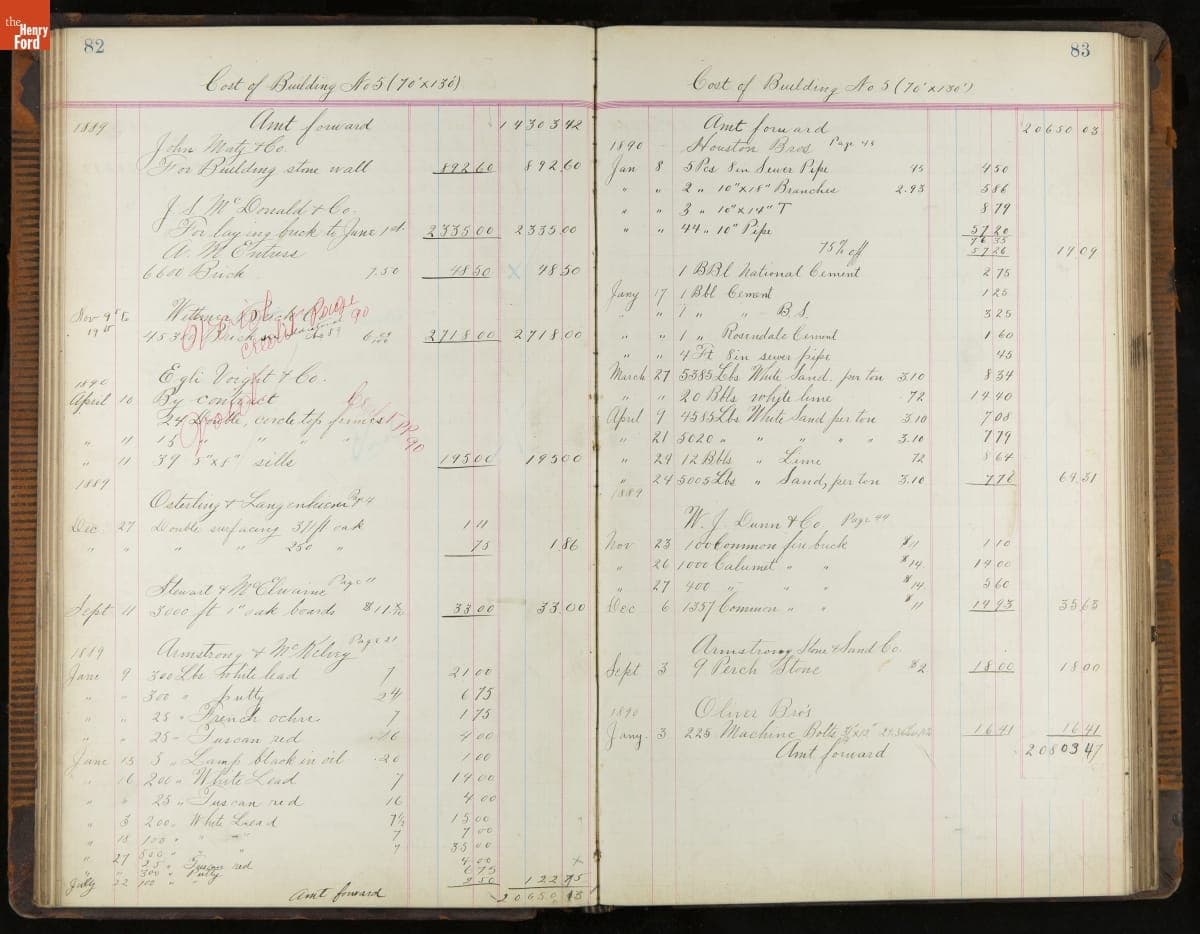 the Henry Ford
82
Cost of Building No 5 (70'x130')
1889 Amt forward 14303 42
John Matz & Co.
For Building stone wall 892.60 892.60
J S McDonald & Co.
For laying brick to June 1st. 2335.00 2335.00
A. M. Entress
6600 Brick 7.50 48.50 x 48.50
Nov 9th to
19th Brick 2718.00 2718.00
90
1890 Egli Voight & Co.
April 10 By contract
24 Double, circle top frames
" " 15 " " " "
90
" 11 39 5"x8" sills 195.00 195.00
1889
Osterling & Langenheim Pg 4
Dec. 27 Double surfacing 371 ft oak 1 11
" " " " 250 " 75 1.86
Stewart & McElwaine Page 11
Sept 11 3000 ft 1" oak boards 33.00 33.00
1889 Armstrong & McKelvy Page 21
June 9 300 Lbs White lead 7 21 00
" " 300 " putty 6 75
" " 25 " French ochre 7 1 75
" " 25 " Tuscan red 16 4 00
June 13 5 " Lamp black in oil .20 1 00
" 16 200 " White Lead 7 14 00
" " 25 " Tuscan red 16 4 00
" 3 200 " White Lead 7½ 15 00
" 18 100 " " " 7 7 00
" 27 500 " " " 7 35 00
" " 25 " Tuscan red 4.00
" " 300 " Putty 6 75
July 22 100 " " 122 75
Amt forward
83
Cost of Building No 5 (70'x130')
Amt forward 20650 03
1890 Houston Bros Page 45
Jan 8 5 Pcs 8in Sewer Pipe 45 4 50
" " 2 " 10"x18" Branches 2.93 5 86
" " 3 " 10"x14" T 8 79
" " 44 " 10" Pipe 57 20
76 35
75% off 57 26 19 09
1 BBl National Cement 2 75
Jany 17 1 Bbl Cement 1 25
" " 1 " " B.S. 3 25
" " 1 " Rosendale Cement 1 60
" " 4 Ft 8in sewer pipe 45
March 27 5385 Lbs White Sand. per ton 3.10 8 34
" " 20 Bbls white lime 72 14 40
April 9 4585 Lbs White Sand per ton 3.10 7 08
" 21 5020 " " " " " 3.10 7 79
" 24 12 Bbls " Lime 72 8 64
" 24 5005 Lbs " Sand, per ton 3.10 7 76 64.31
1889
W. J. Dunn & Co. Page 44
Nov 23 100 Common fire brick $11 1 10
" 26 1000 Calumet " " $14. 14 00
" 27 400 " " " $14. 5 60
Dec 6 1357 Common " " $11 14.93 35.63
Armstrong Stone & Sand Co.
Sept 3 9 Perch Stone $2 18.00 18.00
1890 Oliver Bro's
Jany. 3 225 Machine Bolts 16.41 16.41
Amt forward 20803 47